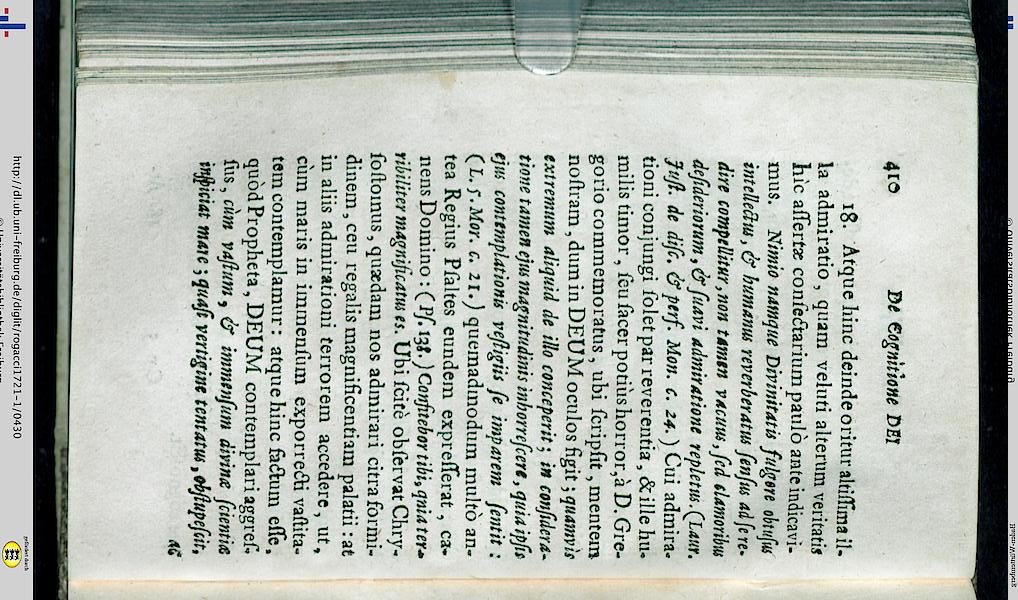 410 De Cognitione DEI
18. Atque hinc deinde oritur altiſſima il-
la admiratio, quam veluti alterum veritatis
hic aſſertæ conſectarium paulò ante indicavi-
mus. Nimio namque Divinitatis fulgore obtuſus
intellectus, & humanus reverberatus ſenſus ad ſe re-
dire compellitur, non tamen vacuus, ſed clamoribus
deſideriorum, & ſuavi admiratione repletus. (Laur.
Juſt. de diſc. & perf. Mon. c. 24.) Cui admira-
tioni conjungi ſolet par reverentia, & ille hu-
milis timor, ſeu ſacer potiùs horror, à D. Gre-
gorio commemoratus, ubi ſcripſit, mentem
noſtram, dum in DEUM oculos figit; quamvis
extremum aliquid de illo conceperit; in conſidera-
tione tamen ejus magnitudinis inhorreſcere, quia ipſis
ejus contemplationis veſtigiis ſe imparem ſentit:
(L. 5. Mor. c. 21.) quemadmodum multò an-
tea Regius Pſaltes eundem expreſſerat, ca-
nens Domino: (Pſ. 138.) Confitebor tibi, quia ter-
ribiliter magnificatus es. Ubi ſcitè obſervat Chry-
ſoſtomus, quædam nos admirari citra formi-
dinem, ceu regalis magnificentiam palatii: at
in aliis admirationi terrorem accedere, ut,
cùm maris in immenſum exporrecti vaſtita-
tem contemplamur: atque hinc factum eſſe,
quòd Propheta, DEUM contemplari aggreſ-
ſus, cùm vaſtum, & immenſum divinæ ſcientiæ
inſpiciat mare; quaſi vertigine tentatus, obſtupeſcit,
ac
http://dl.ub.uni-freiburg.de/diglit/rogacci1721-1/0430
© Universitätsbibliothek Freiburg
gefördert durch